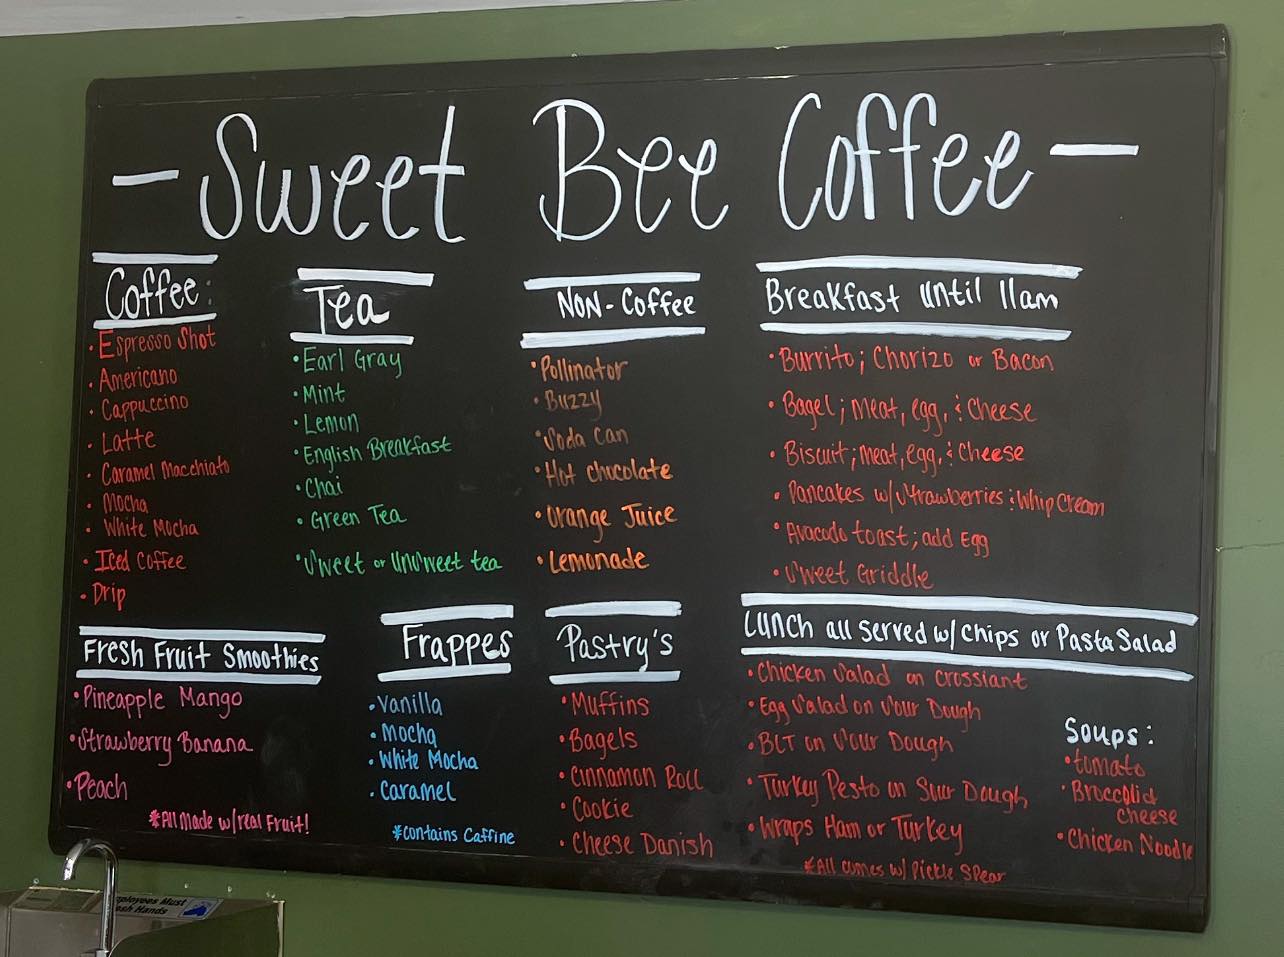 - Sweet Bee Coffee -
Coffee:
• Espresso Shot
• Americano
• Cappuccino
• Latte
• Caramel Macchiato
• Mocha
• White Mocha
• Iced Coffee
• Drip
Tea
• Earl Gray
• Mint
• Lemon
• English Breakfast
• Chai
• Green Tea
• Sweet or Unsweet tea
Non-Coffee
• Pollinator
• Buzzy
• Soda Can
• Hot chocolate
• Orange Juice
• Lemonade
Breakfast Until 11am
• Burrito; Chorizo or Bacon
• Bagel; meat, egg, & Cheese
• Biscuit; meat, egg, & Cheese
• Pancakes w/ Strawberries & Whip Cream
• Avacado toast; add Egg
• Sweet Griddle
Fresh Fruit Smoothies
• Pineapple Mango
• Strawberry Banana
• Peach
*All made w/ real Fruit!
Frappes
• Vanilla
• Mocha
• White Mocha
• Caramel
*Contains Caffine
Pastry's
• Muffins
• Bagels
• Cinnamon Roll
• Cookie
• Cheese Danish
Lunch all served w/ Chips or Pasta Salad
• Chicken Salad on Crossiant
• Egg Salad on Sour Dough
• BLT on Sour Dough
• Turkey Pesto on Sour Dough
• Wraps Ham or Turkey
*All comes w/ Pickle Spear
Soups:
• tomato
• Broccoli &
cheese
• Chicken Noodle
Employees Must
Wash Hands